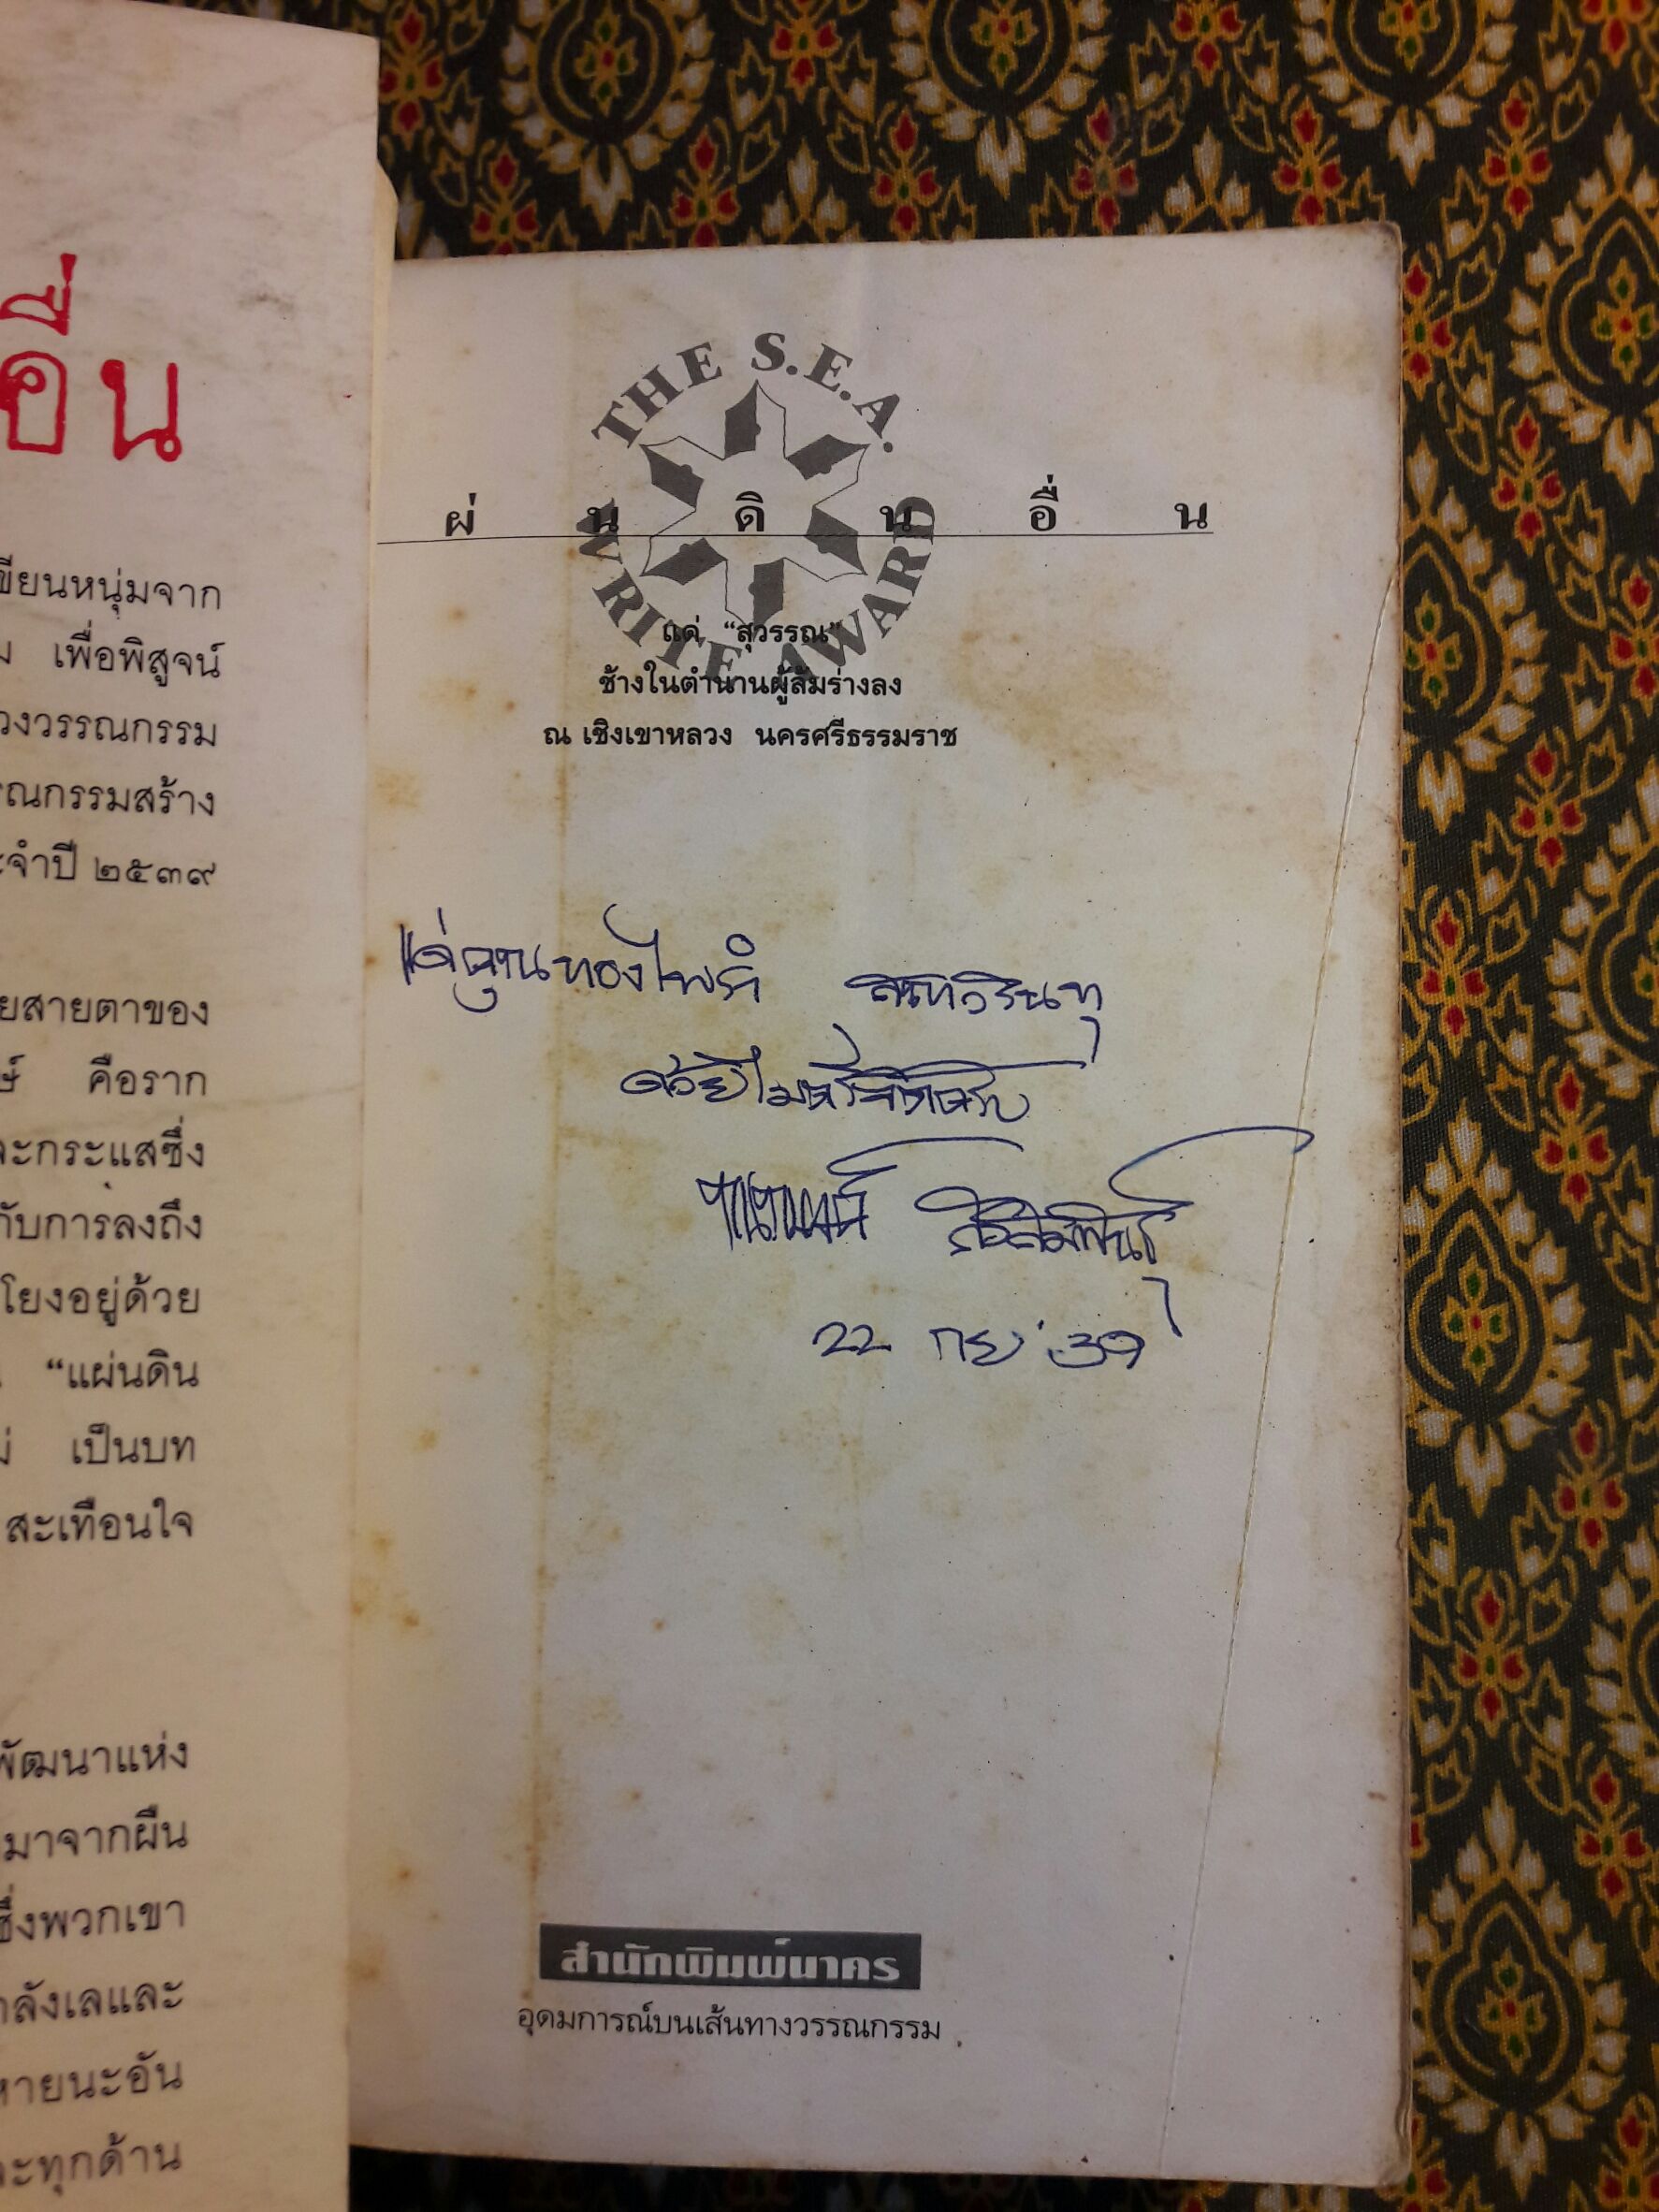 อื่น
ขียนหนุ่มจาก
เพื่อพิสูจน์
วงวรรณกรรม
รณกรรมสร้าง
ะจำปี ๒๕๓๙
ยสายตาของ
คือราก
ละกระแสซึ่ง
กับการลงถึง
โยงอยู่ด้วย
“แผ่นดิน
เป็นบท
สะเทือนใจ
พัฒนาแห่ง
มาจากผืน
ซึ่งพวกเขา
ลังเลและ
หายนะอัน
ละทุกด้าน
THE S.E.A. WRITE AWARD
ผ่ น ดิ น อื่ น
แด่ “สุวรรณ”
ช้างในตำนานผู้ล้มร่างลง
ณ เชิงเขาหลวง นครศรีธรรมราช
แด่คุณทองไพรำ
ด้วยไมตรีจิตครับ
กนกพงศ์ สงสมพันธุ์
22 กย '39
สำนักพิมพ์นาคร
อุดมการณ์บนเส้นทางวรรณกรรม